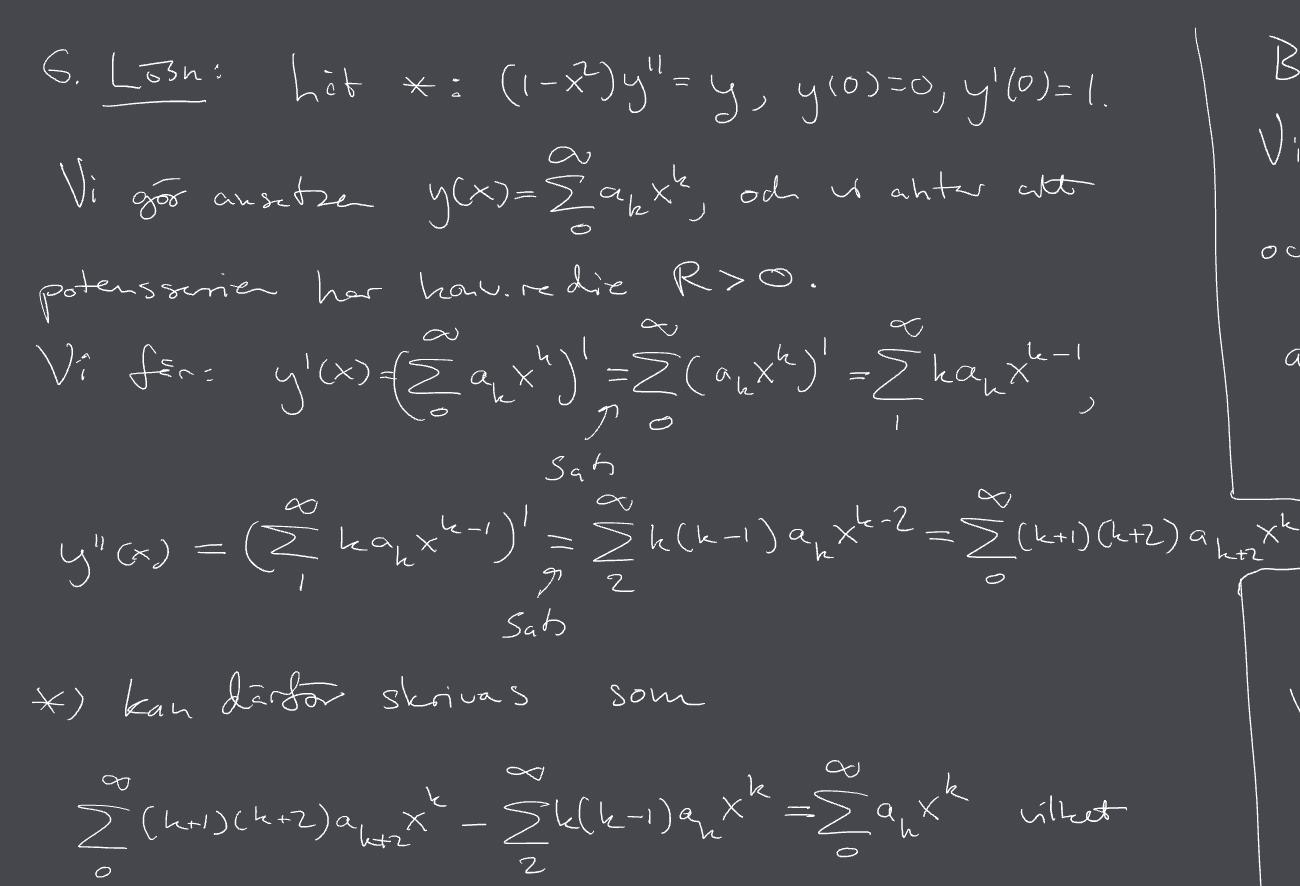 6. Lösn: Låt *: (1-x²)y'' = y, y(0)=0, y'(0)=1.
Vi gör ansatzen y(x) = ∑_0^∞ a_k x^k, och vi antar att
potensserien har konv.radie R > 0.
Vi får: y'(x) = (∑_0^∞ a_k x^k)' = ∑_0^∞ (a_k x^k)' = ∑_1^∞ k a_k x^{k-1},
Sats
y''(x) = (∑_1^∞ k a_k x^{k-1})' = ∑_2^∞ k(k-1) a_k x^{k-2} = ∑_0^∞ (k+1)(k+2) a_{k+2} x^k
Sats
*) kan därför skrivas som
∑_0^∞ (k+1)(k+2) a_{k+2} x^k - ∑_2^∞ k(k-1) a_k x^k = ∑_0^∞ a_k x^k vilket
B
Vi
oc
a